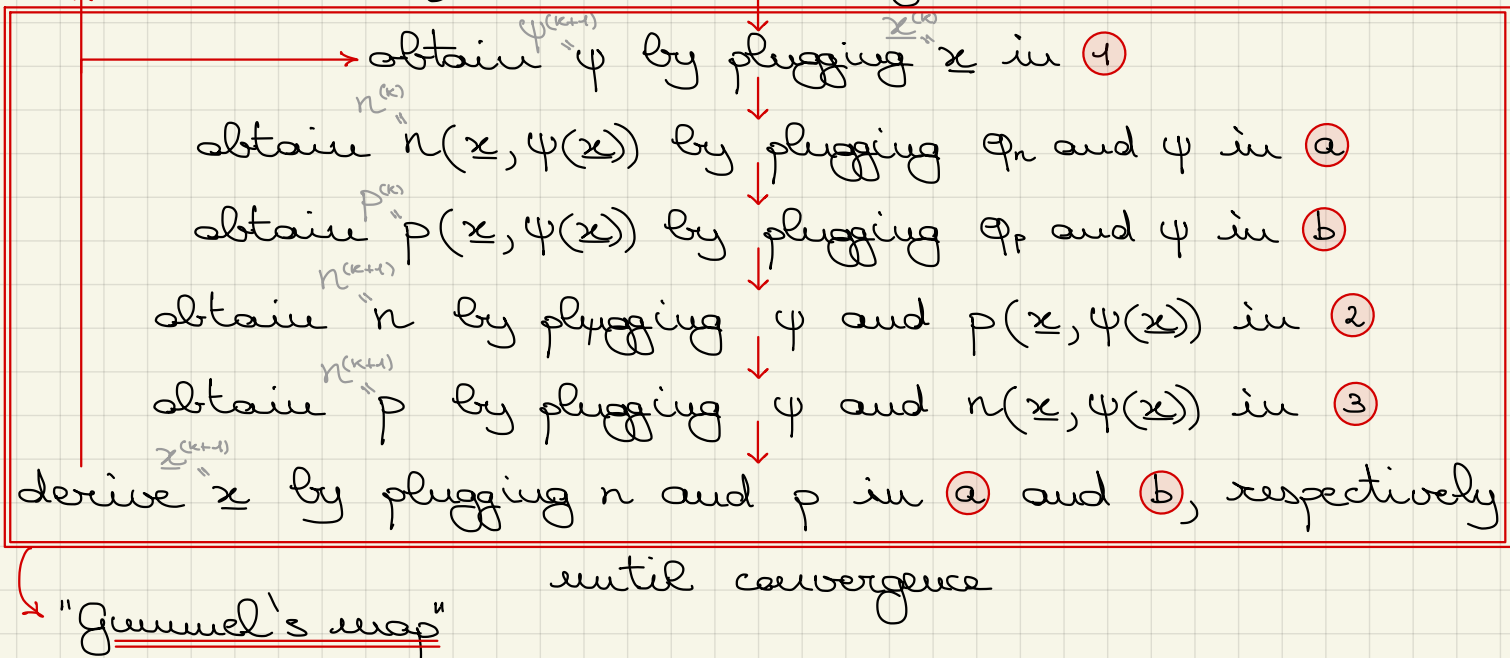 ψ^(k+1) x^(k)
obtain ψ by plugging x in 1
n^(k)
obtain n(x, ψ(x)) by plugging φn and ψ in a
p^(k)
obtain p(x, ψ(x)) by plugging φp and ψ in b
n^(k+1)
obtain n by plugging ψ and p(x, ψ(x)) in 2
n^(k+1)
obtain p by plugging ψ and n(x, ψ(x)) in 3
x^(k+1)
derive x by plugging n and p in a and b, respectively
until convergence
"Gummel's map"